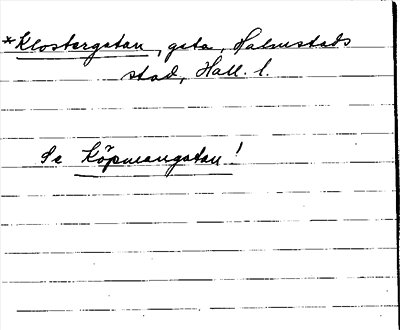 *Klostergatan, gata, Halmstads
stad, Hall. l.
Se Köpmangatan!